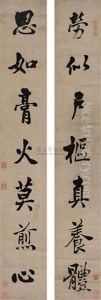 勞似戶樞真養體
思如膏火莫煎心